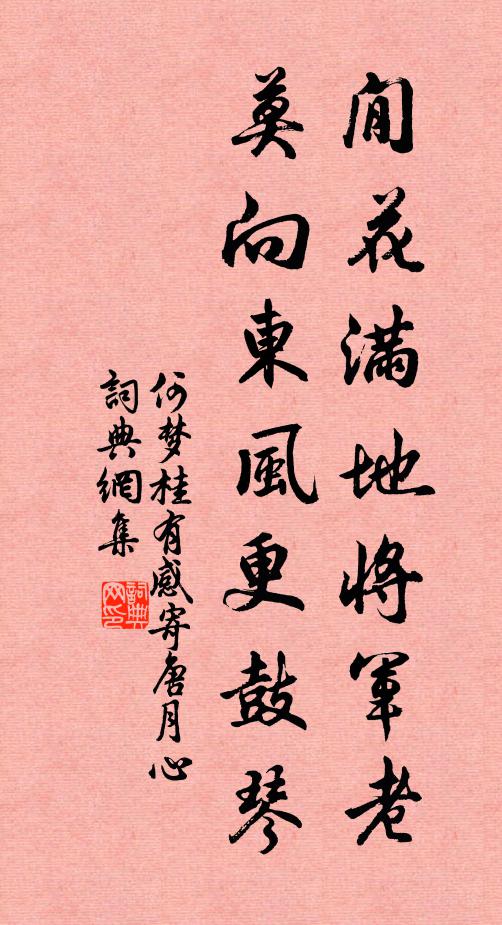 閒花滿地將軍老
莫向東風更鼓琴
何梦桂有感寄唐月心
詞典網集
詞典
网印